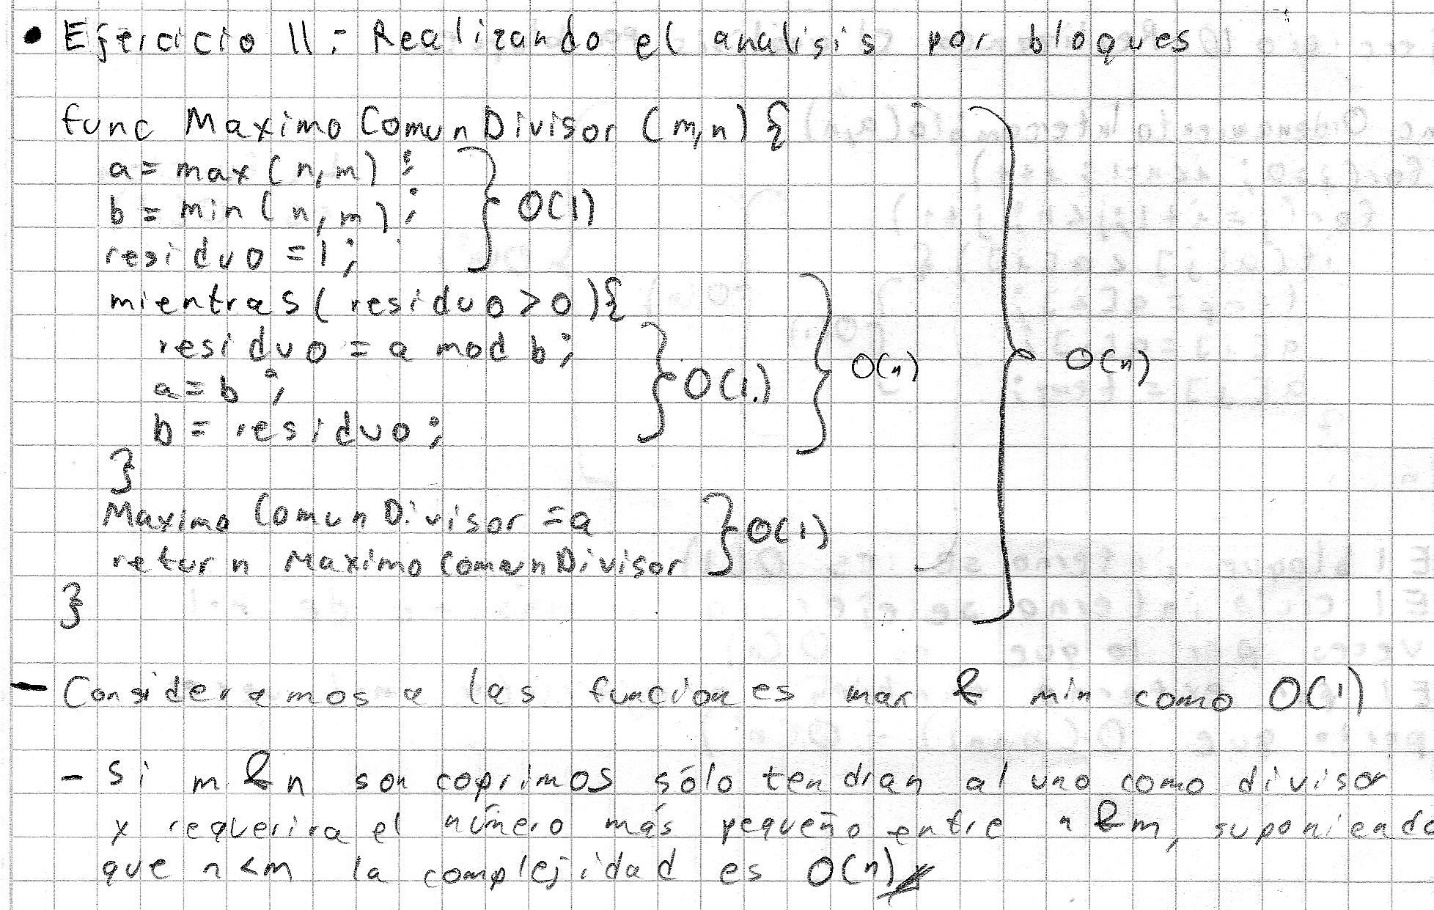 • Ejercicio 11.- Realizando el analisis por bloques
func MaximoComunDivisor (m,n) {
a = max (n,m) ;
b = min (n,m) ;
} O(1)
residuo = 1 ;
mientras ( residuo > 0 ) {
residuo = a mod b ;
a = b ;
} O(1) } O(n) } O(n)
b = residuo ;
}
Maximo Comun Divisor = a
} O(1)
return MaximoComunDivisor
}
- Consideramos a las funciones max & min como O(1)
- Si m & n son coprimos sólo tendran al uno como divisor
y requerira el número más pequeño entre n & m, suponiendo
que n < m la complejidad es O(n)